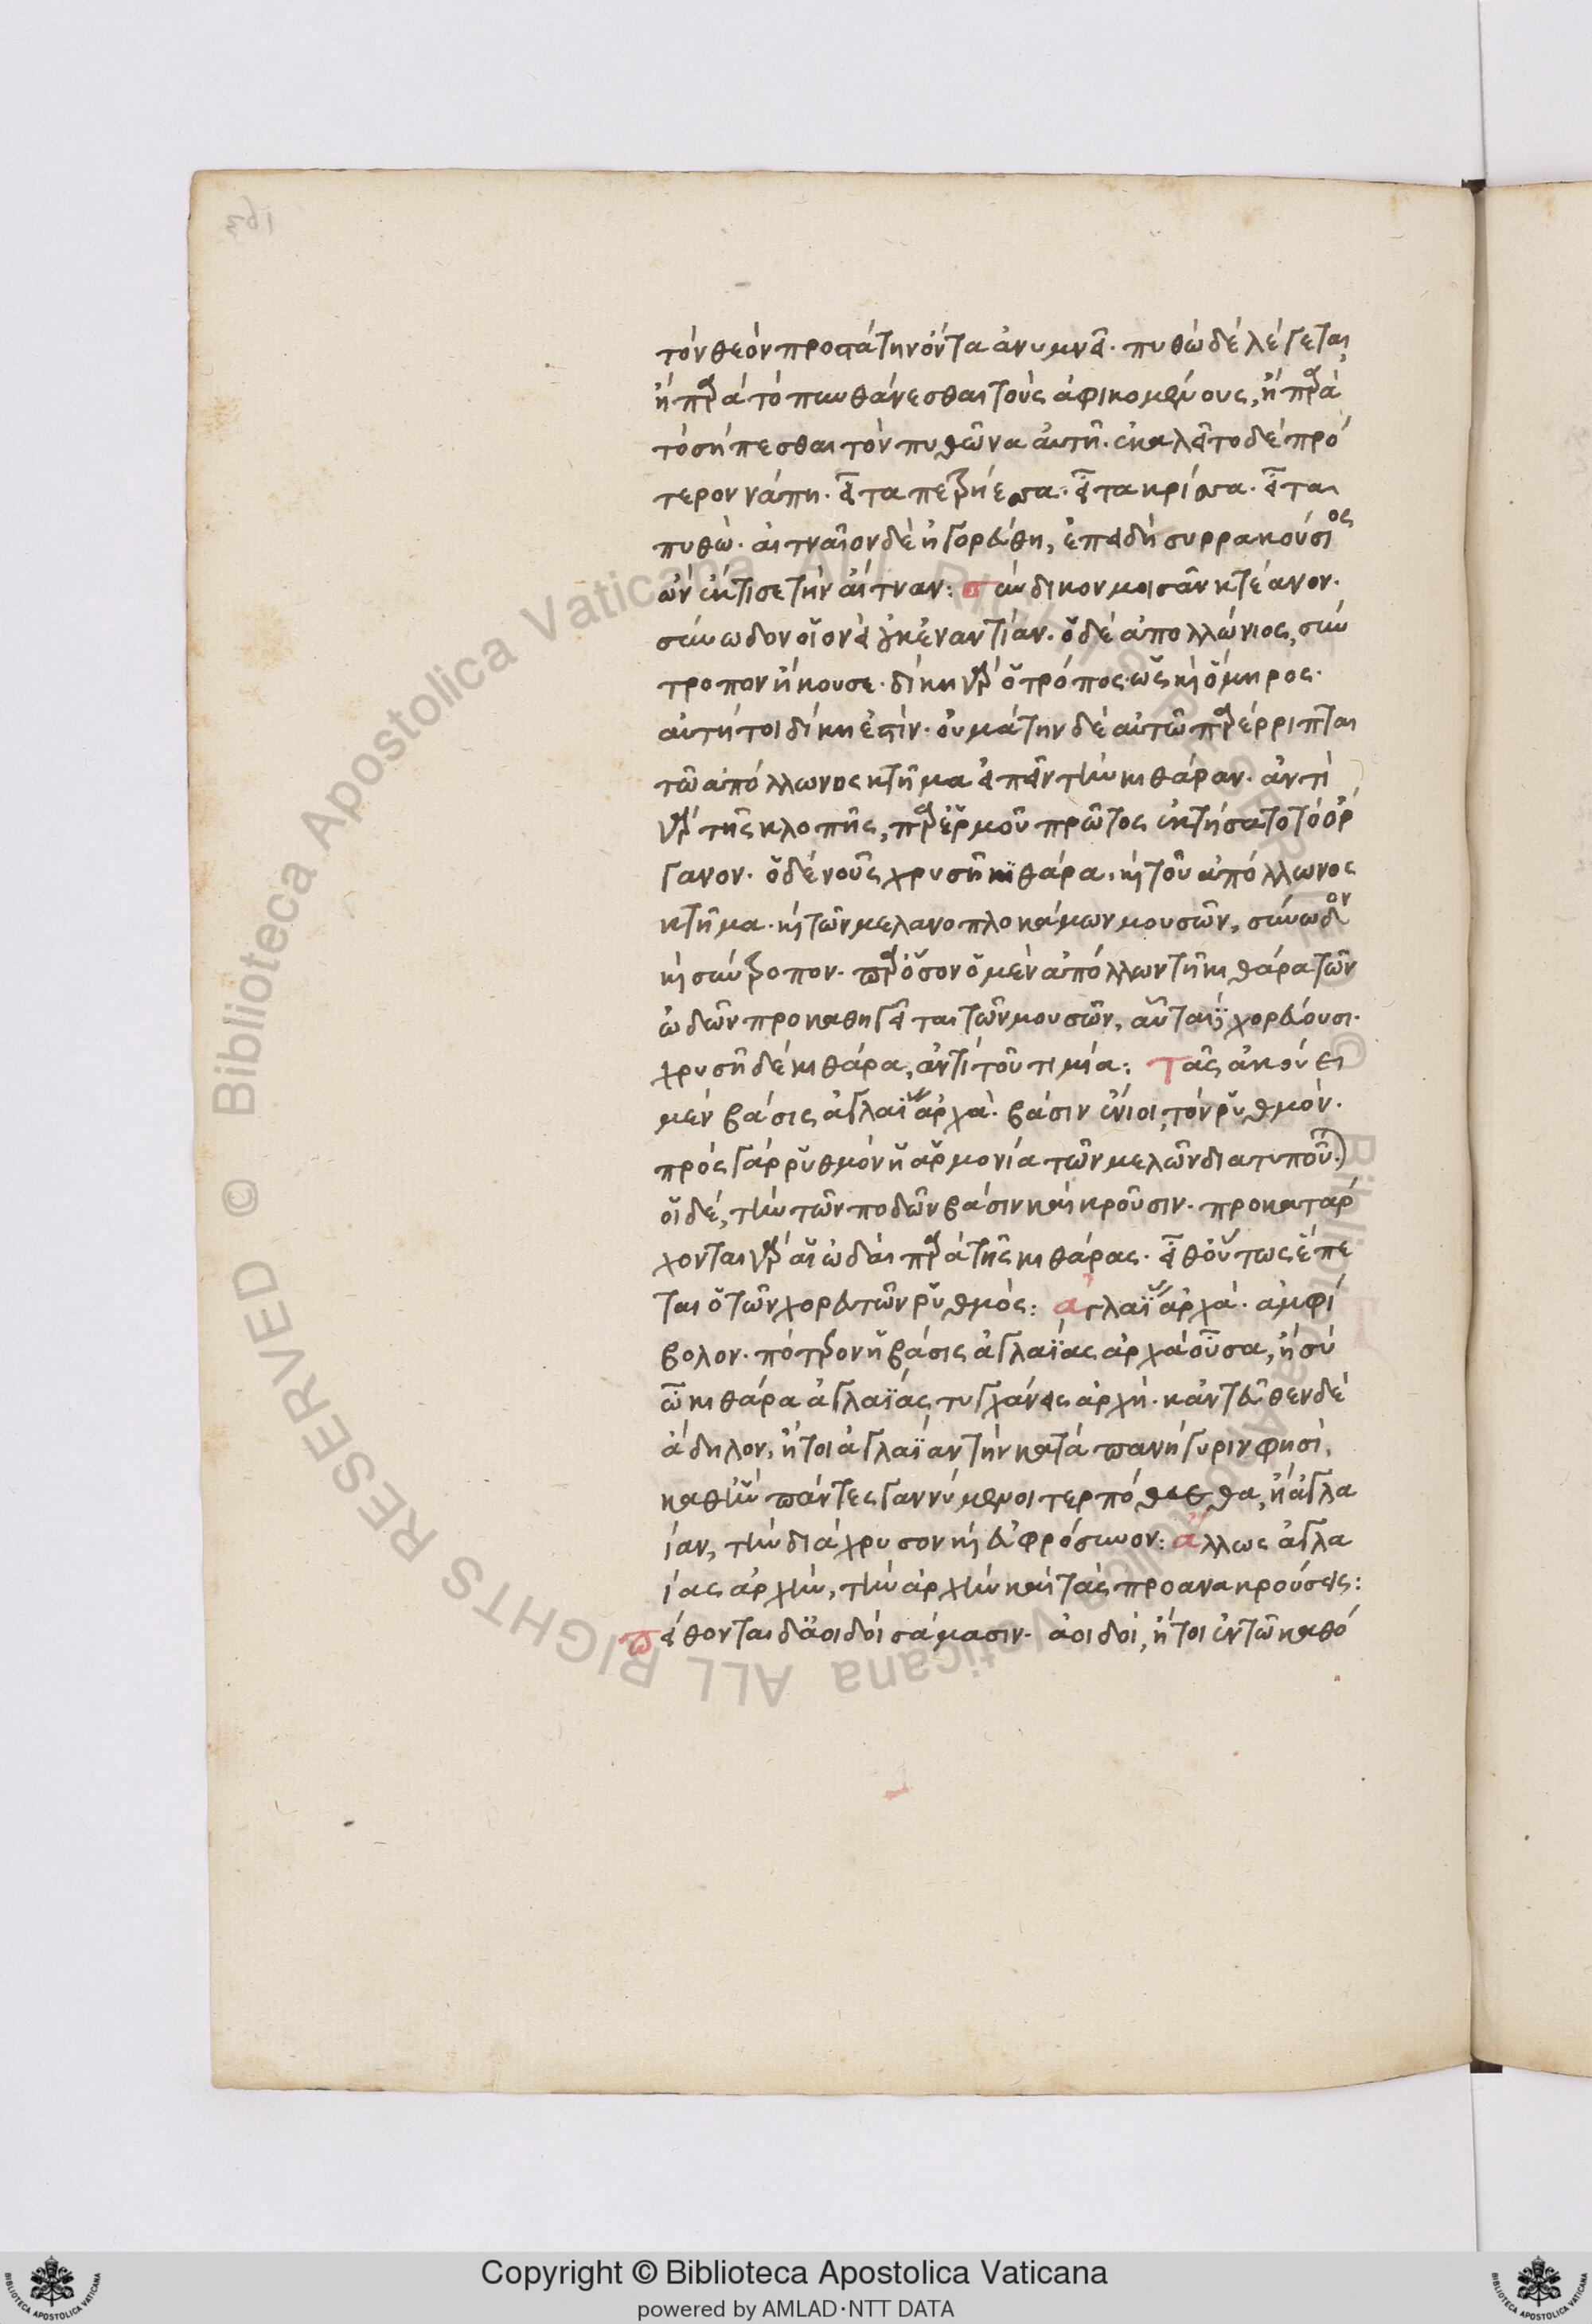 τὸν θεὸν προστάτην ὄντα ἀνυμνεῖ. πυθὼ δὲ λέγεται
ἢ παρὰ τὸ πυνθάνεσθαι τοὺς ἀφικομένους, ἢ παρὰ
τὸ σήπεσθαι τὸν πυθῶνα αὐτῆ. ἐκαλεῖτο δὲ πρό
τερον νάπη. εἶτα πετρήεσσα. εἶτα κρίσσα. εἶτα
πυθώ. αἰτναῖον δὲ ἠγορεύθη, ἐπειδὴ συρρακούσιος
ὢν ἔκτισε τὴν αἴτναν: σύνδικον μοισᾶν κτέανον.
σύνωδον οἷονεὶ οὐκ ἐναντίαν. ὁ δὲ ἀπολλώνιος, σύν
τροπον ἤκουσε. δίκη γὰρ ὁ τρόπος. ὡς καὶ ὅμηρος.
αὐτή τοι δίκη ἐστίν. οὐ μάτην δὲ αὐτῶ παρέρριπται
τῶ ἀπόλλωνος κτῆμα εἰπεῖν τὴν κιθάραν. ἀντὶ
γὰρ τῆς κλοπῆς, παρ' ἑρμοῦ πρῶτος ἐκτήσατο τὸ ὄρ
γανον. ὁ δὲ νοῦς χρυσῆ κιθάρα. καὶ τοῦ ἀπόλλωνος
κτῆμα. καὶ τῶν μελανοπλοκάμων μουσῶν, σύνωδον
καὶ σύντροπον. παρ' ὅσον ὁ μὲν ἀπόλλων τῆ κιθάρα τῶν
ὠδῶν προκαθηγεῖται τῶν μουσῶν, αὗται δὲ χορεύουσι.
χρυσῆ δὲ κιθάρα, ἀντὶ τοῦ τιμία: τᾶς ἀκούει
μὲν βάσις ἀγλαΐας ἀρχά. βάσιν ἔνιοι, τὸν ῥυθμόν.
πρὸς γὰρ ῥυθμὸν ἡ ἁρμονία τῶν μελῶν διατυποῦται
οἱ δέ, τὴν τῶν ποδῶν βάσιν καὶ κροῦσιν. προκατάρ
χονται γὰρ αἱ ὠδαὶ παρὰ τῆς κιθάρας. εἶθ' οὕτως ἕπε
ται ὁ τῶν χορευτῶν ῥυθμός: ἀγλαΐας ἀρχά. ἀμφί
βολον. πότερον ἡ βάσις ἀγλαΐας ἀρχὰ οὖσα, ἢ σὺ
ὦ κιθάρα ἀγλαΐας τυγχάνεις ἀρχή. κἀντεῦθεν δὲ
ἄδηλον, ἤτοι ἀγλαΐαν τὴν κατὰ πανήγυριν φησί,
καθ' ἣν πάντες γαννύμενοι τερπόμεθα, ἢ ἀγλα
ίαν, τὴν διάχρυσον καὶ εὐφρόσυνον: ἄλλως ἀγλα
ίας ἀρχήν, τὴν ἀρχὴν καὶ τὰς προανακρούσεις:
πείθονται δ' ἀοιδοὶ σάμασιν. ἀοιδοί, ἤτοι ἐν τῶ καθό
Copyright © Biblioteca Apostolica Vaticana
powered by AMLAD·NTT DATA